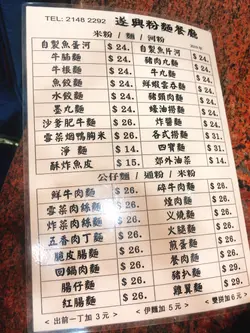 TEL: 2148 2292 遂興粉麵餐廳
米粉 / 麵 / 河粉
自製魚蛋河 $ 24. 自製魚片河 $ 24.
牛腩麵 $ 24. 豬肉丸麵 $ 24.
牛根麵 $ 24. 牛丸麵 $ 24.
魚餃麵 $ 24. 鮮蝦雲吞麵 $ 24.
水餃麵 $ 24. 豬頸肉麵 $ 24.
墨丸麵 $ 24. 炸醬麵 $ 24.
沙爹肥牛麵 $ 26. 各式撈麵 $ 24.
雪菜烟鴨胸米 $ 26. 四寶麵 $ 31.
淨麵 $ 15. 郊外油菜 $ 14.
酥炸魚皮 $ 15.
公仔麵 / 通粉 / 米粉
鮮牛肉麵 $ 26. 碎牛肉麵 $ 26.
雪菜肉絲麵 $ 26. 燒肉麵 $ 26.
炸菜肉絲麵 $ 26. 叉燒麵 $ 26.
五香肉丁麵 $ 26. 火腿麵 $ 26.
脆皮腸麵 $ 26. 煎蛋麵 $ 26.
回鍋肉麵 $ 26. 餐肉麵 $ 26.
腸仔麵 $ 26. 豬扒麵 $ 29.
紅腸麵 $ 26. 雞翼麵 $ 29.
< 出前一丁加 3 元 > < 伊麵加 5 元 > < 雙拼加 6 元 >